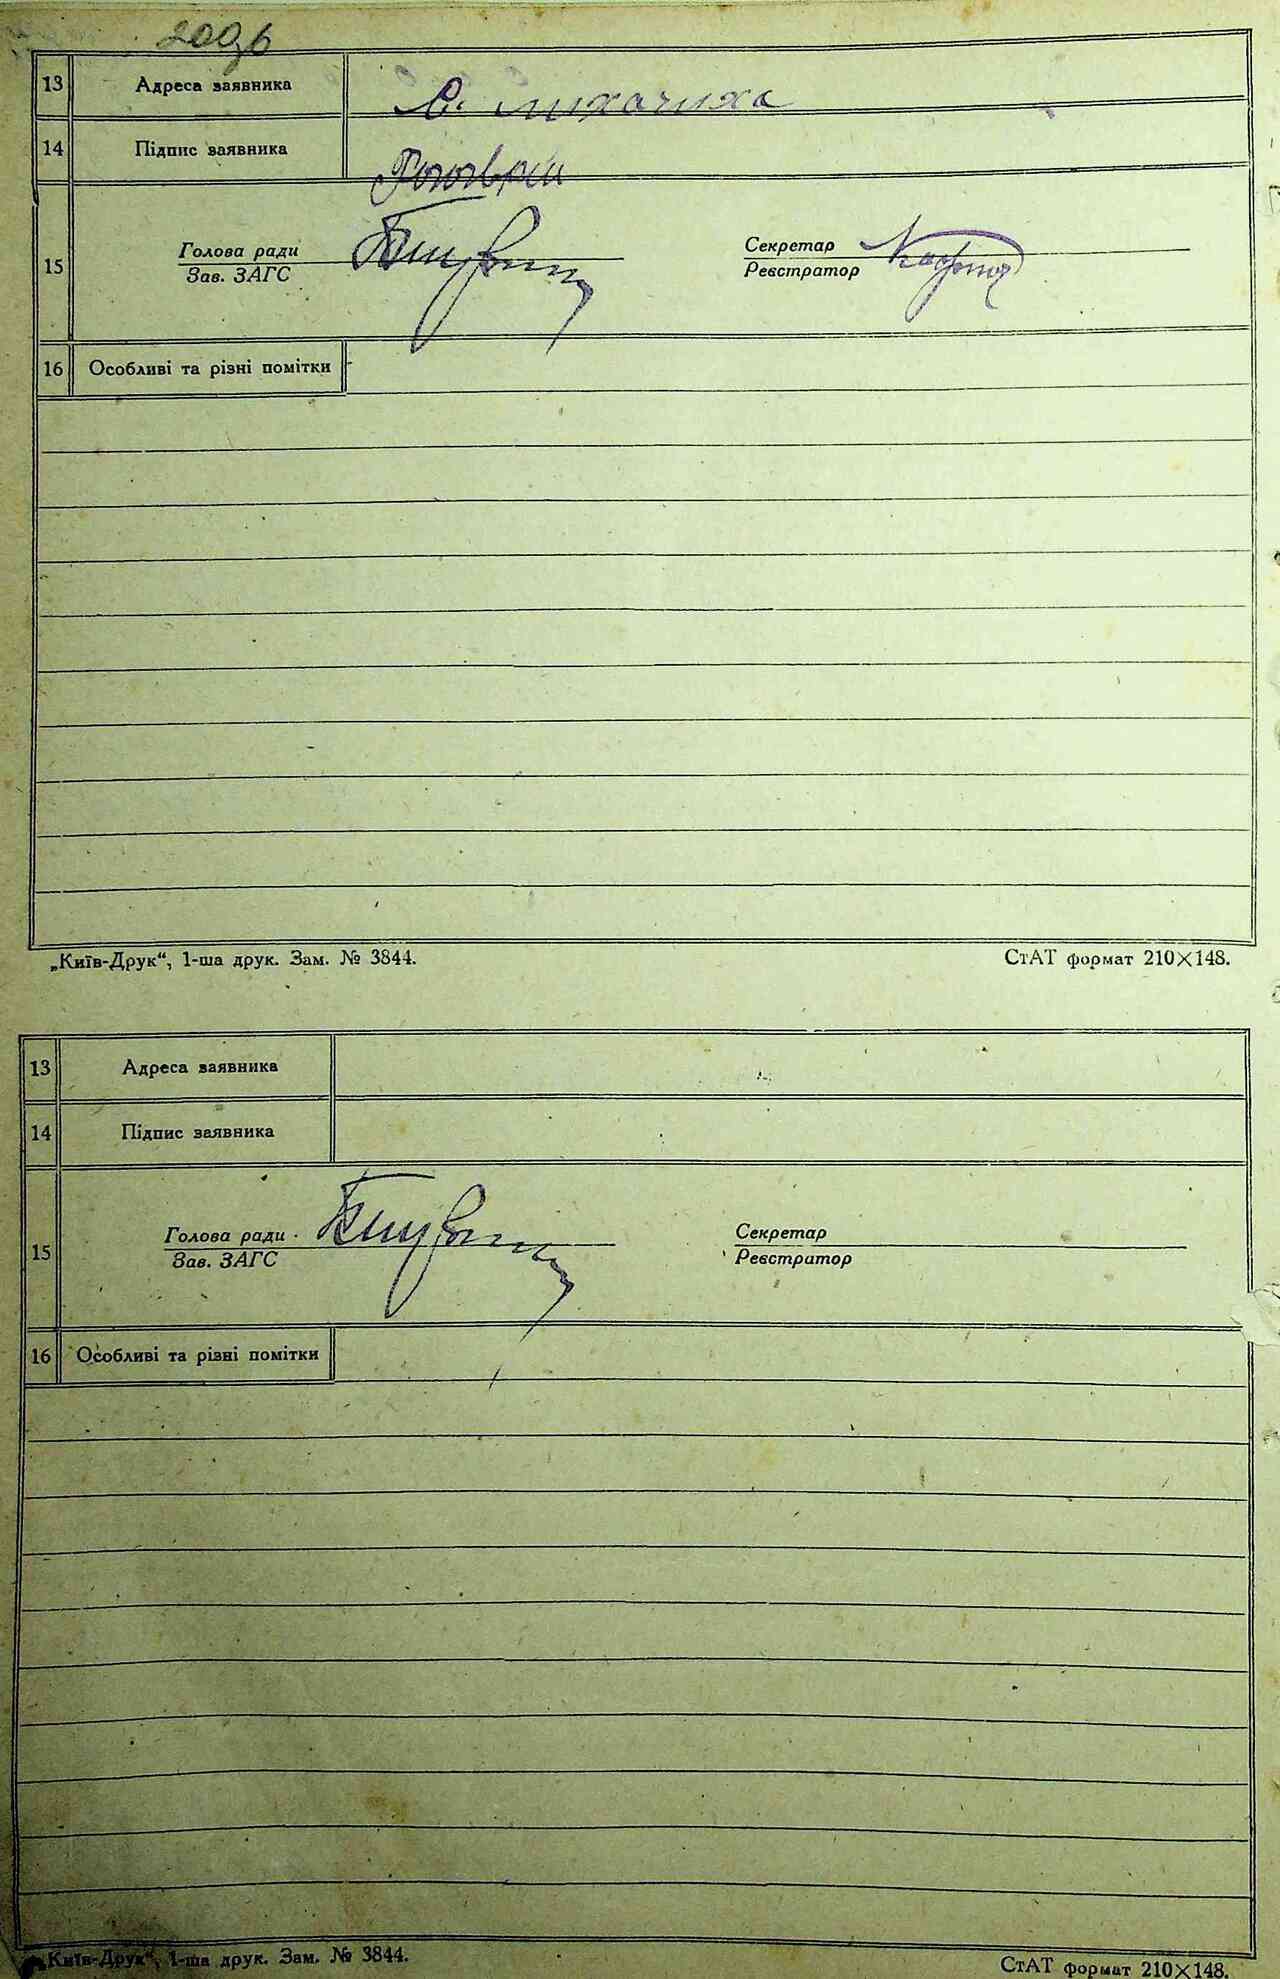 200зв
13 Адреса заявника с. Лихачиха
14 Підпис заявника
15 Голова ради Секретар
Зав. ЗАГС Реєстратор
16 Особливі та різні помітки
„Київ-Друк“, 1-ша друк. Зам. № 3844. СтАТ формат 210×148.
13 Адреса заявника
14 Підпис заявника
15 Голова ради Секретар
Зав. ЗАГС Реєстратор
16 Особливі та різні помітки
„Київ-Друк“, 1-ша друк. Зам. № 3844. СтАТ формат 210×148.